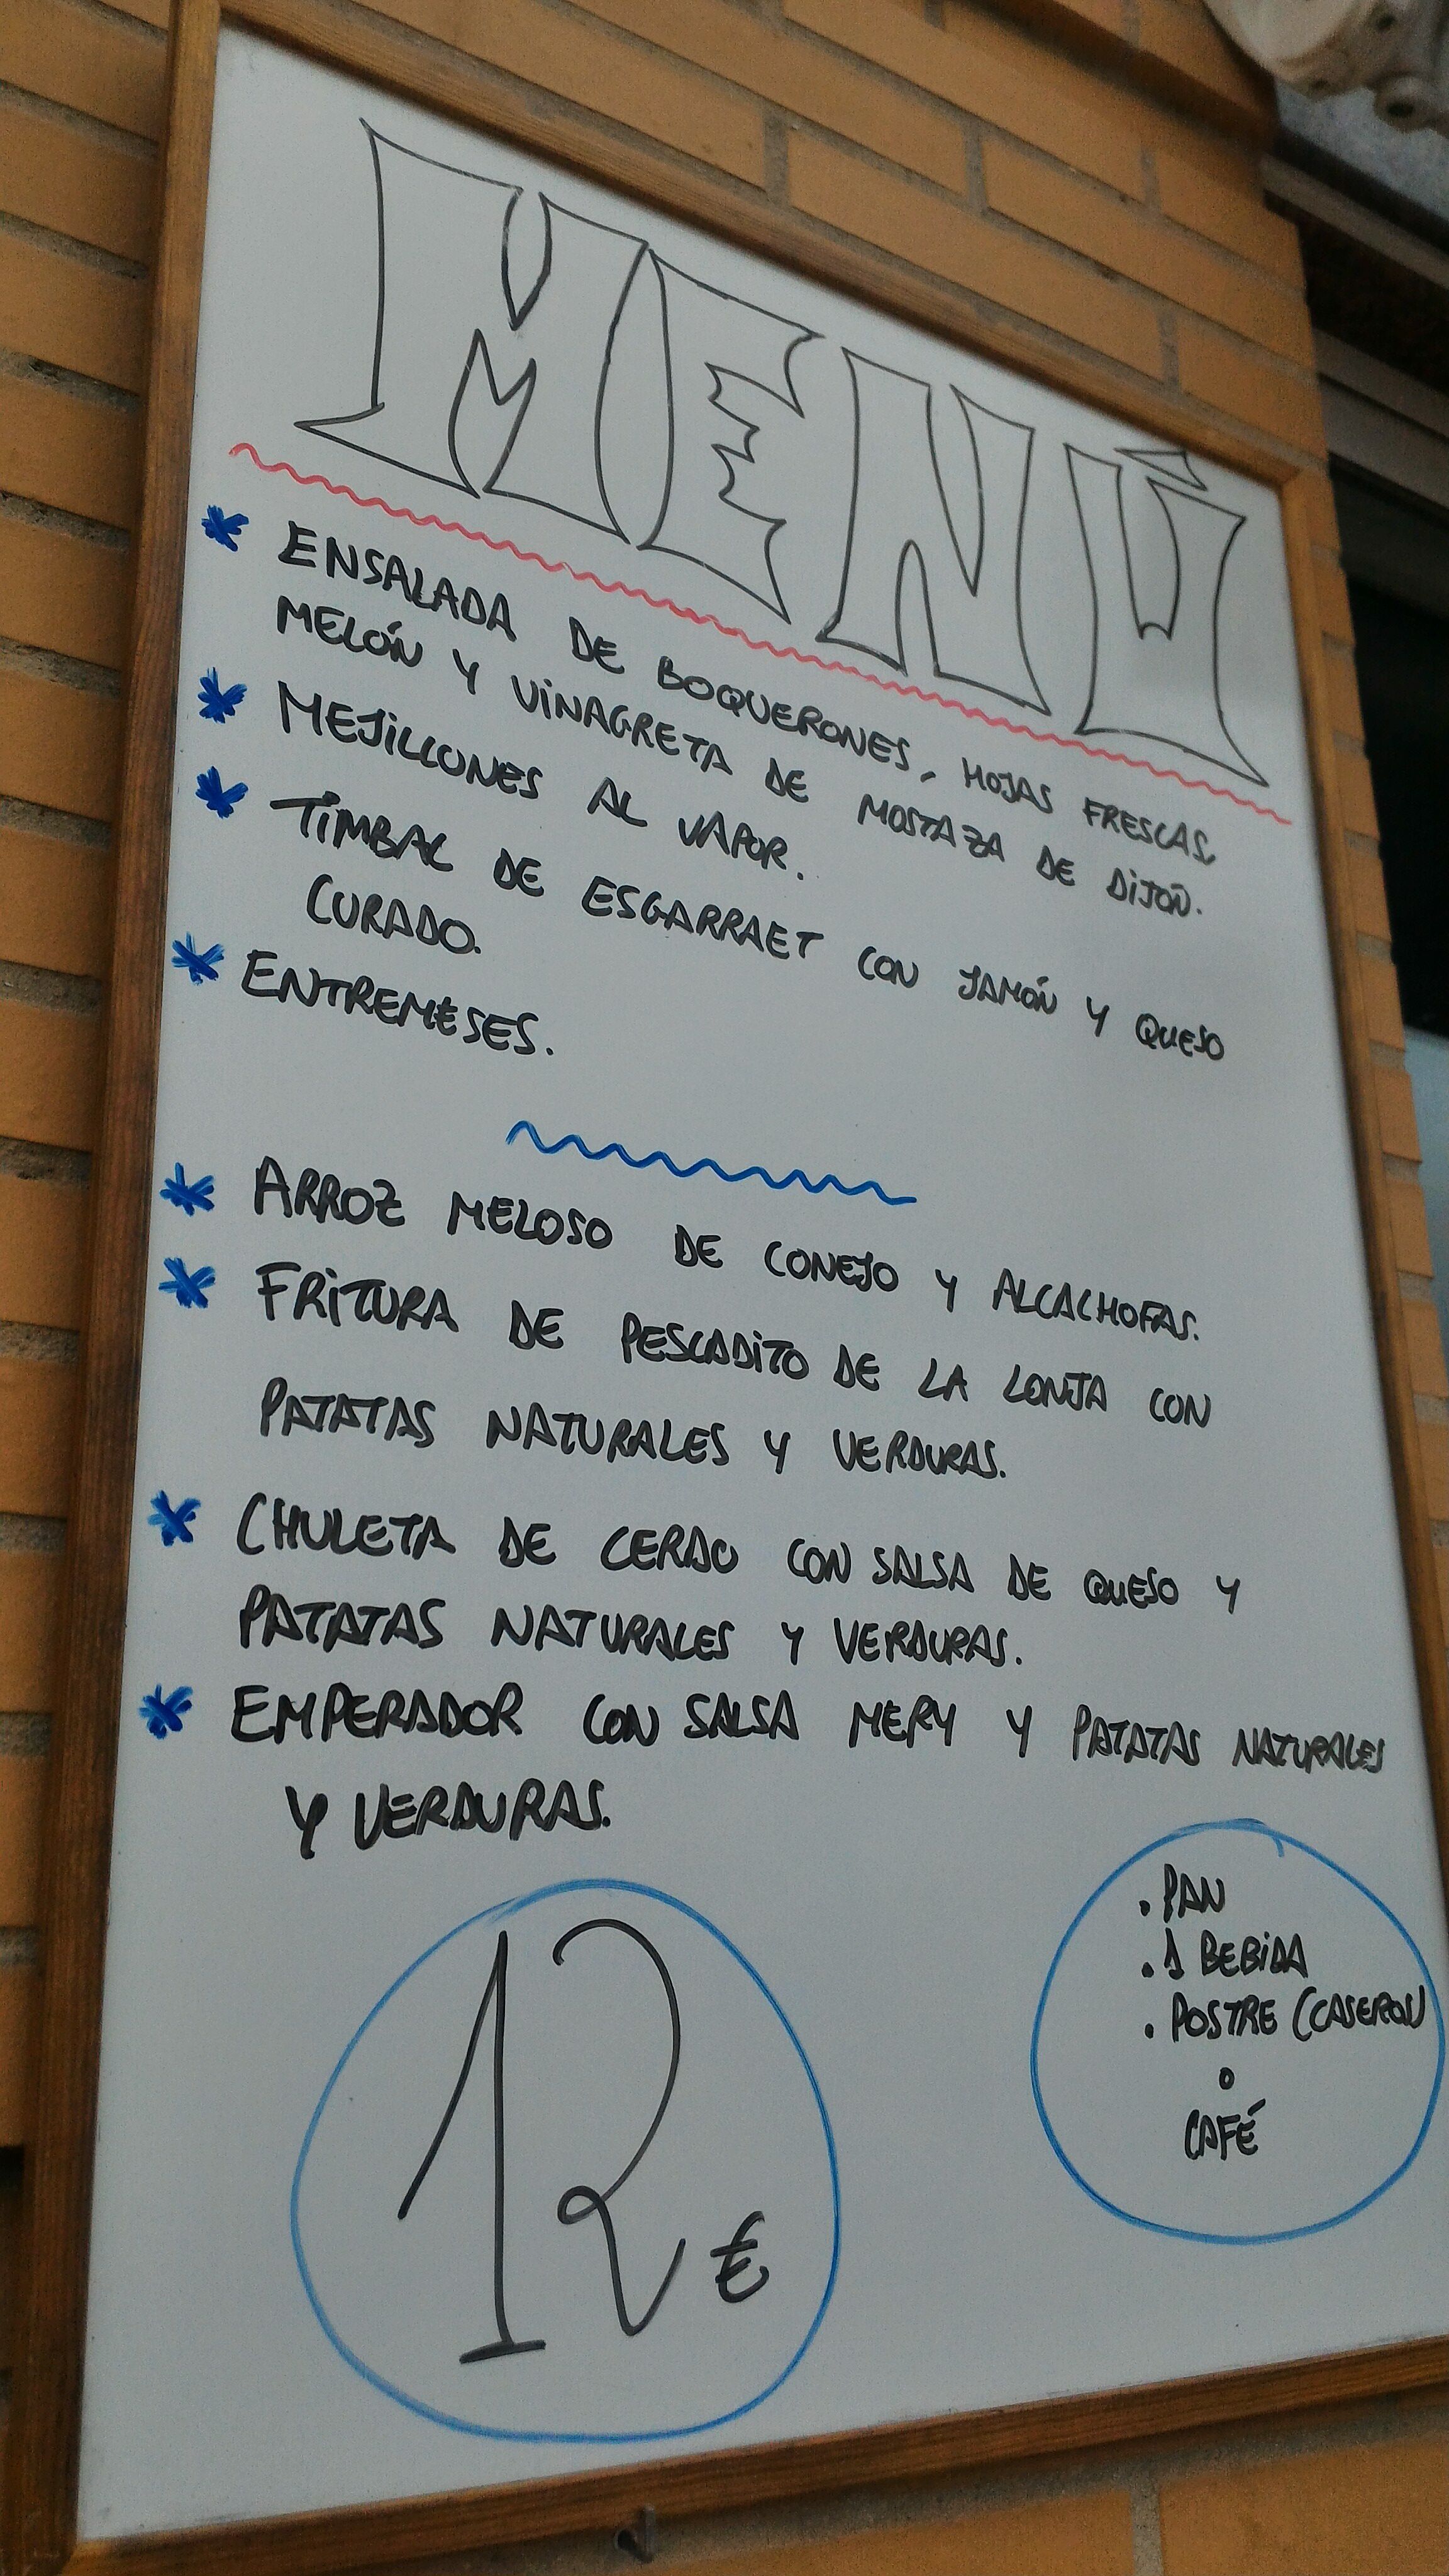 MENÚ
* ENSALADA DE BOQUERONES, HOJAS FRESCAS,
MELÓN Y VINAGRETA DE MOSTAZA DE DIJON.
* MEJILLONES AL VAPOR.
* TIMBAL DE ESGARRAET CON JAMÓN Y QUESO
CURADO.
* ENTREMESES.
* ARROZ MELOSO DE CONEJO Y ALCACHOFAS.
* FRITURA DE PESCADITO DE LA LONJA CON
PATATAS NATURALES Y VERDURAS.
* CHULETA DE CERDO CON SALSA DE QUESO Y
PATATAS NATURALES Y VERDURAS.
* EMPERADOR CON SALSA MERY Y PATATAS NATURALES
Y VERDURAS.
12 €
. PAN
. 1 BEBIDA
. POSTRE (CASEROS)
O
CAFÉ